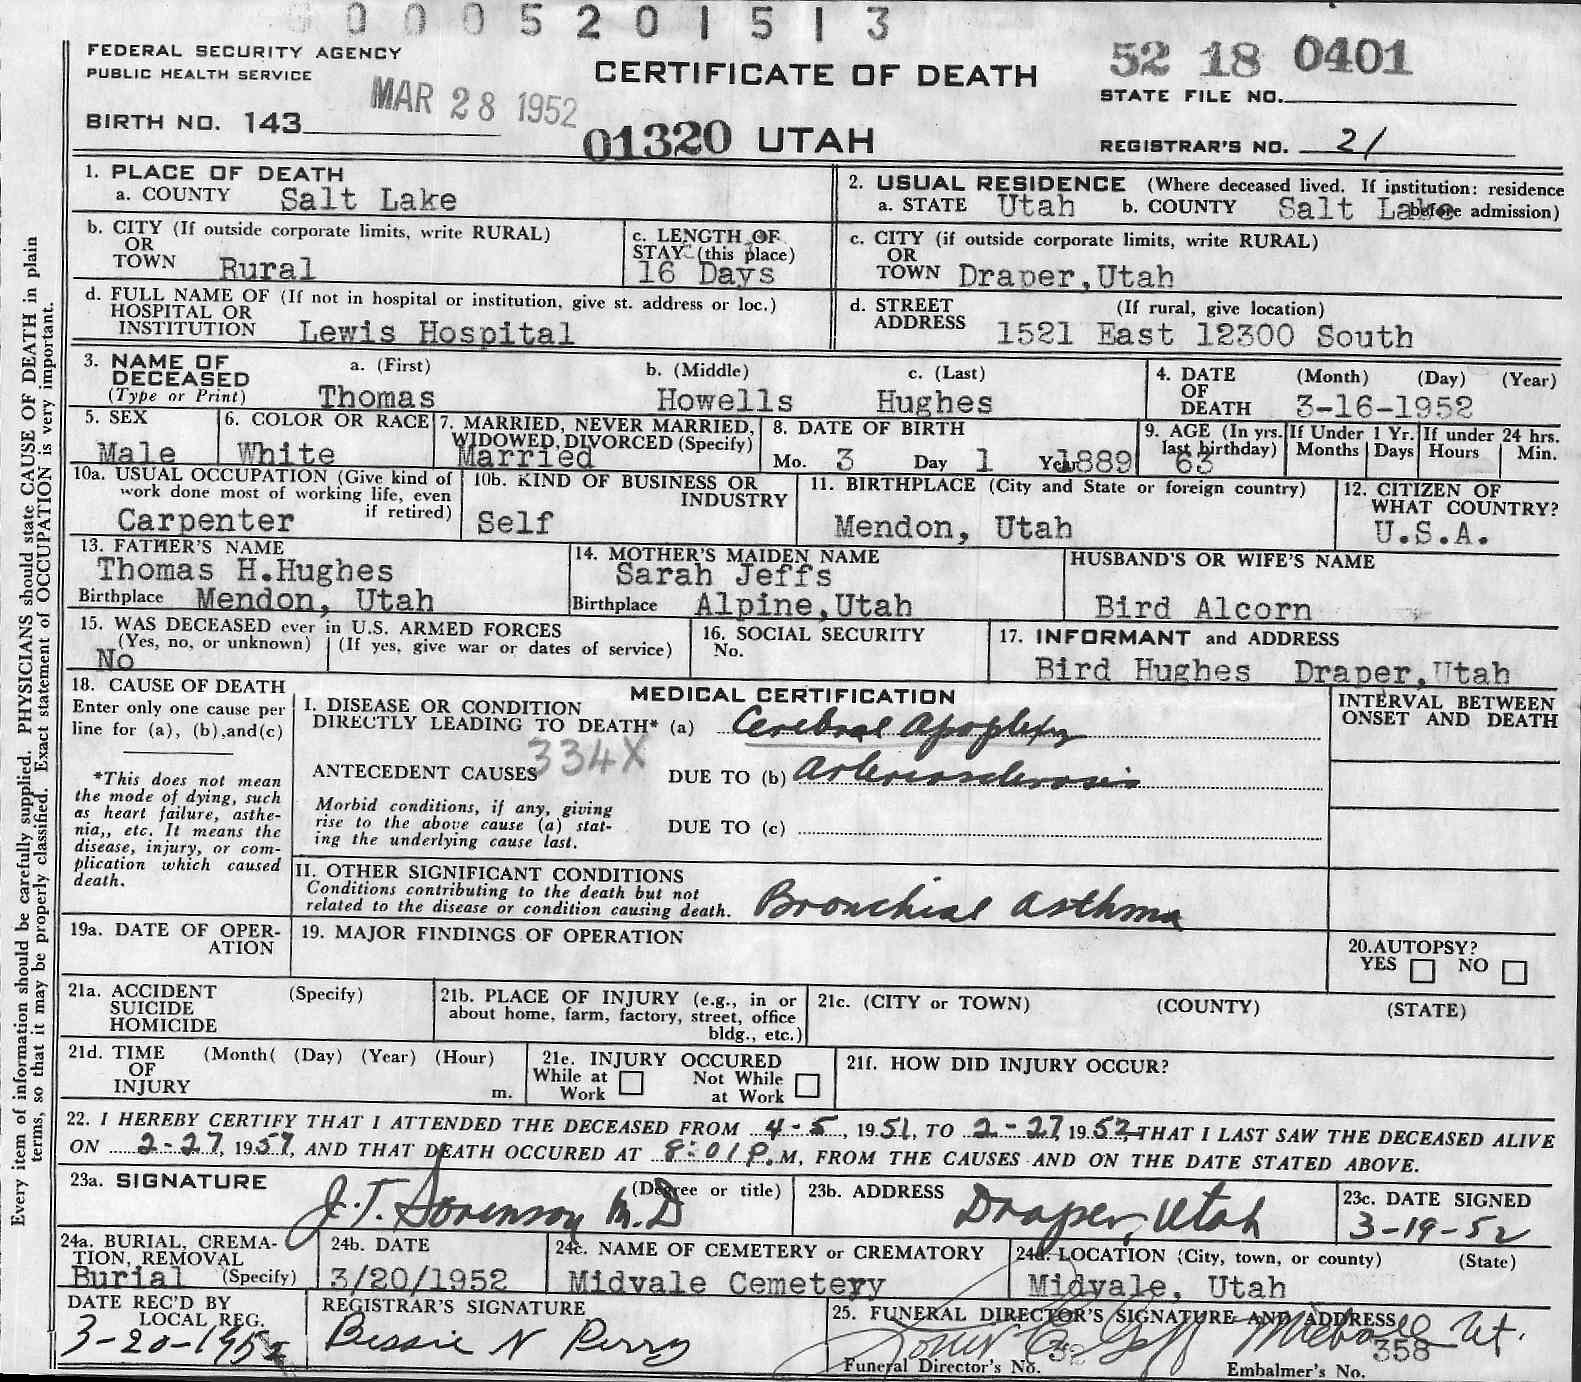 0005201513
FEDERAL SECURITY AGENCY
PUBLIC HEALTH SERVICE
MAR 28 1952
CERTIFICATE OF DEATH
52 18 0401
STATE FILE NO.
BIRTH NO. 143
01320 UTAH
REGISTRAR'S NO. 21
Every item of information should be carefully supplied. PHYSICIANS should state CAUSE OF DEATH in plain
terms, so that it may be properly classified. Exact statement of OCCUPATION is very important.
1. PLACE OF DEATH
a. COUNTY Salt Lake
2. USUAL RESIDENCE (Where deceased lived. If institution: residence
before admission)
a. STATE Utah b. COUNTY Salt Lake
b. CITY (If outside corporate limits, write RURAL)
OR
TOWN Rural
c. LENGTH OF
STAY (this place)
16 Days
c. CITY (if outside corporate limits, write RURAL)
OR
TOWN Draper,Utah
d. FULL NAME OF (If not in hospital or institution, give st. address or loc.)
HOSPITAL OR
INSTITUTION Lewis Hospital
d. STREET (If rural, give location)
ADDRESS 1521 East 12300 South
3. NAME OF
DECEASED
(Type or Print)
a. (First) b. (Middle) c. (Last)
Thomas Howells Hughes
4. DATE (Month) (Day) (Year)
OF
DEATH 3-16-1952
5. SEX
Male
6. COLOR OR RACE
White
7. MARRIED, NEVER MARRIED,
WIDOWED, DIVORCED (Specify)
Married
8. DATE OF BIRTH
Mo. 3 Day 1 Year 1889
9. AGE (In yrs.
last birthday)
63
If Under 1 Yr.
Months Days
If under 24 hrs.
Hours Min.
10a. USUAL OCCUPATION (Give kind of
work done most of working life, even
if retired)
Carpenter
10b. KIND OF BUSINESS OR
INDUSTRY
Self
11. BIRTHPLACE (City and State or foreign country)
Mendon, Utah
12. CITIZEN OF
WHAT COUNTRY?
U.S.A.
13. FATHER'S NAME
Thomas H.Hughes
Birthplace Mendon, Utah
14. MOTHER'S MAIDEN NAME
Sarah Jeffs
Birthplace Alpine,Utah
HUSBAND'S OR WIFE'S NAME
Bird Alcorn
15. WAS DECEASED ever in U.S. ARMED FORCES
(Yes, no, or unknown) (If yes, give war or dates of service)
No
16. SOCIAL SECURITY
No.
17. INFORMANT and ADDRESS
Bird Hughes Draper,Utah
18. CAUSE OF DEATH
Enter only one cause per
line for (a), (b),and(c)
*This does not mean
the mode of dying, such
as heart failure, asthe-
nia,, etc. It means the
disease, injury, or com-
plication which caused
death.
MEDICAL CERTIFICATION
INTERVAL BETWEEN
ONSET AND DEATH
I. DISEASE OR CONDITION
DIRECTLY LEADING TO DEATH* (a) Cerebral apoplexy
334X
ANTECEDENT CAUSES DUE TO (b) Arteriosclerosis
Morbid conditions, if any, giving
rise to the above cause (a) stat-
ing the underlying cause last.
DUE TO (c)
II. OTHER SIGNIFICANT CONDITIONS
Conditions contributing to the death but not
related to the disease or condition causing death. Bronchial asthma
19a. DATE OF OPER-
ATION
19. MAJOR FINDINGS OF OPERATION
20.AUTOPSY?
YES NO
21a. ACCIDENT (Specify)
SUICIDE
HOMICIDE
21b. PLACE OF INJURY (e.g., in or
about home, farm, factory, street, office
bldg., etc.)
21c. (CITY or TOWN) (COUNTY) (STATE)
21d. TIME (Month( (Day) (Year) (Hour)
OF
INJURY m.
21e. INJURY OCCURED
While at Work Not While at Work
21f. HOW DID INJURY OCCUR?
22. I HEREBY CERTIFY THAT I ATTENDED THE DECEASED FROM 4-5, 1951, TO 2-27, 1952, THAT I LAST SAW THE DECEASED ALIVE
ON 2-27, 1957, AND THAT DEATH OCCURED AT 8:01 P.M, FROM THE CAUSES AND ON THE DATE STATED ABOVE.
23a. SIGNATURE (Degree or title)
J.T. Sorenson M.D
23b. ADDRESS
Draper, Utah
23c. DATE SIGNED
3-19-52
24a. BURIAL, CREMA-
TION, REMOVAL
Burial (Specify)
24b. DATE
3/20/1952
24c. NAME OF CEMETERY or CREMATORY
Midvale Cemetery
24d. LOCATION (City, town, or county) (State)
Midvale, Utah
DATE REC'D BY
LOCAL REG.
3-20-1952
REGISTRAR'S SIGNATURE
Bessie N Perry
25. FUNERAL DIRECTOR'S SIGNATURE AND ADDRESS
Goff Midvale Ut.
Funeral Director's No. 32
Embalmer's No. 358